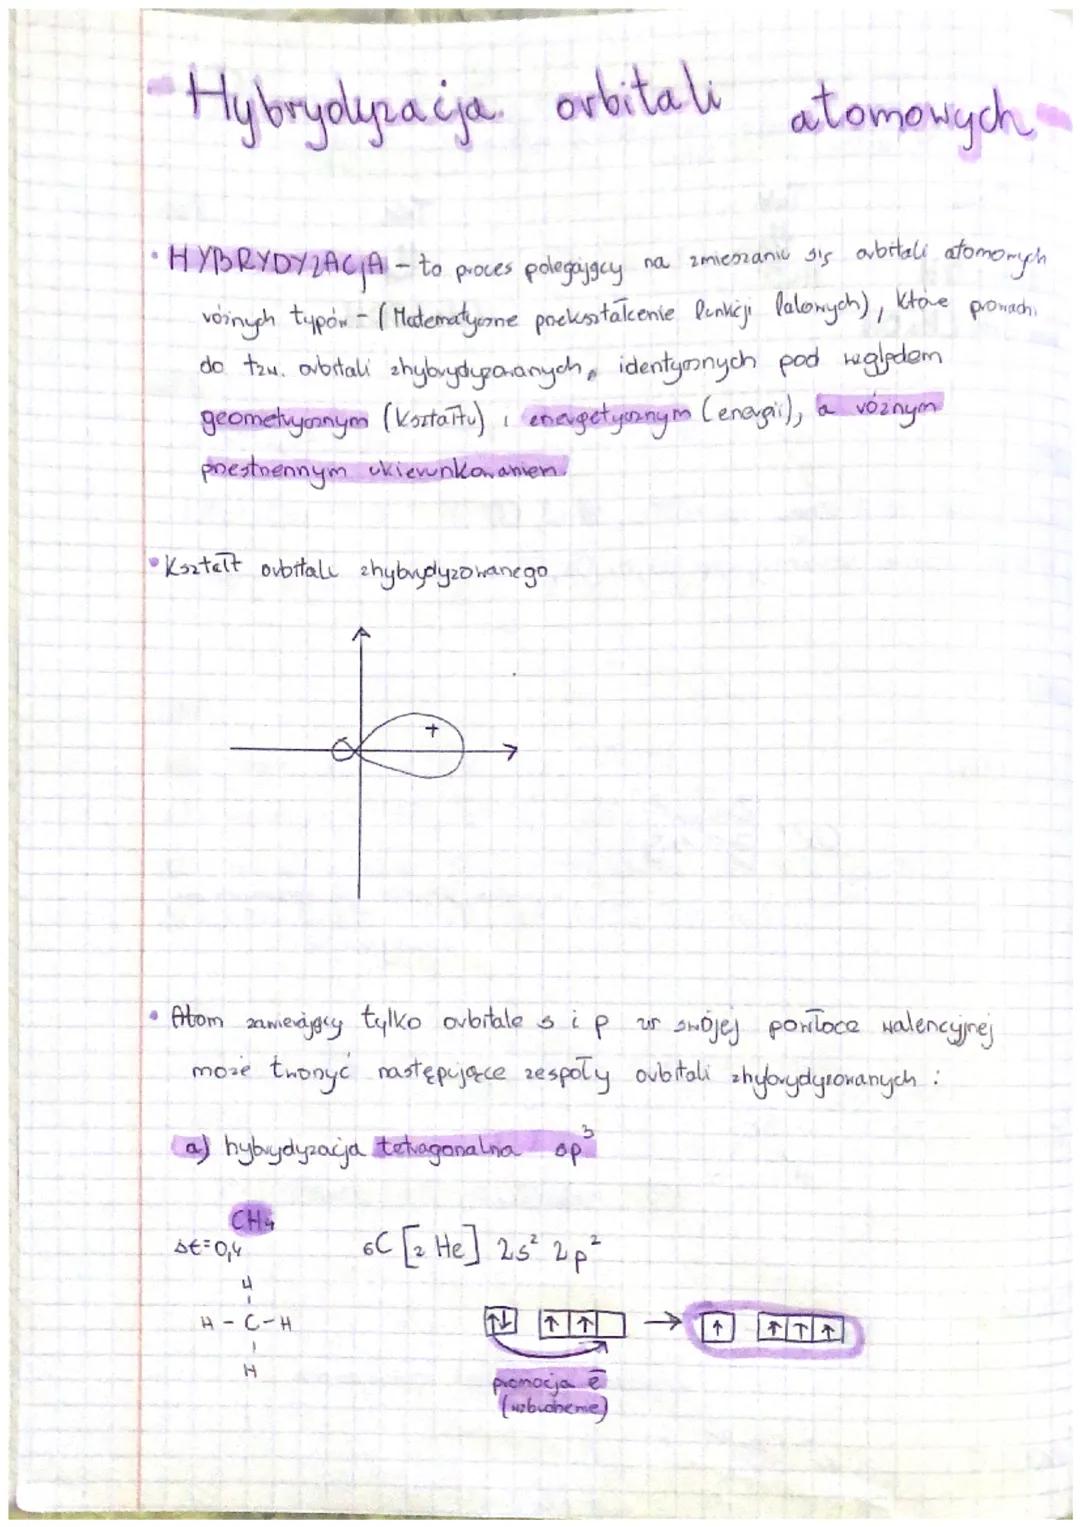 - Hybrydyzacja orbitali atomowych -
• HYBRYDYZACJA - to proces polegający na zmieszaniu się orbitali atomowych
różnych typów - (Matematyczne przekształcenie funkcji falowych), które prowadzi
do tzw. orbitali zhybrydyzowanych, identycznych pod względem
geometrycznym (kształtu) i energetycznym (energii), a różnym
przestrzennym ukierunkowaniem.
• Kształt orbitalu zhybrydyzowanego
+
• Atom zawierający tylko orbitale s i p w swojej powłoce walencyjnej
może tworzyć następujące zespoły orbitali zhybrydyzowanych :
a) hybrydyzacja tetragonalna sp³
CH₄
ΔE=0,4 ₆C [₂He] 2s² 2p²
H
H - C - H ↑↓ ↑ ↑ → ↑ ↑ ↑ ↑
H
promocja ē
(wzbudzenie)